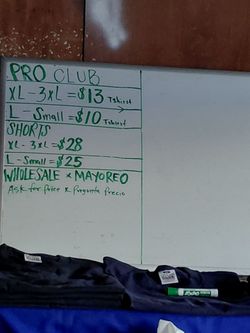 PRO CLUB
XL - 3XL = $13 Tshirt
L - Small = $10 Tshirt
SHORTS
XL - 3XL = $28
L - Small = $25
WHOLESALE * MAYOREO
Ask for Price * Pregunta Precio
EXPO